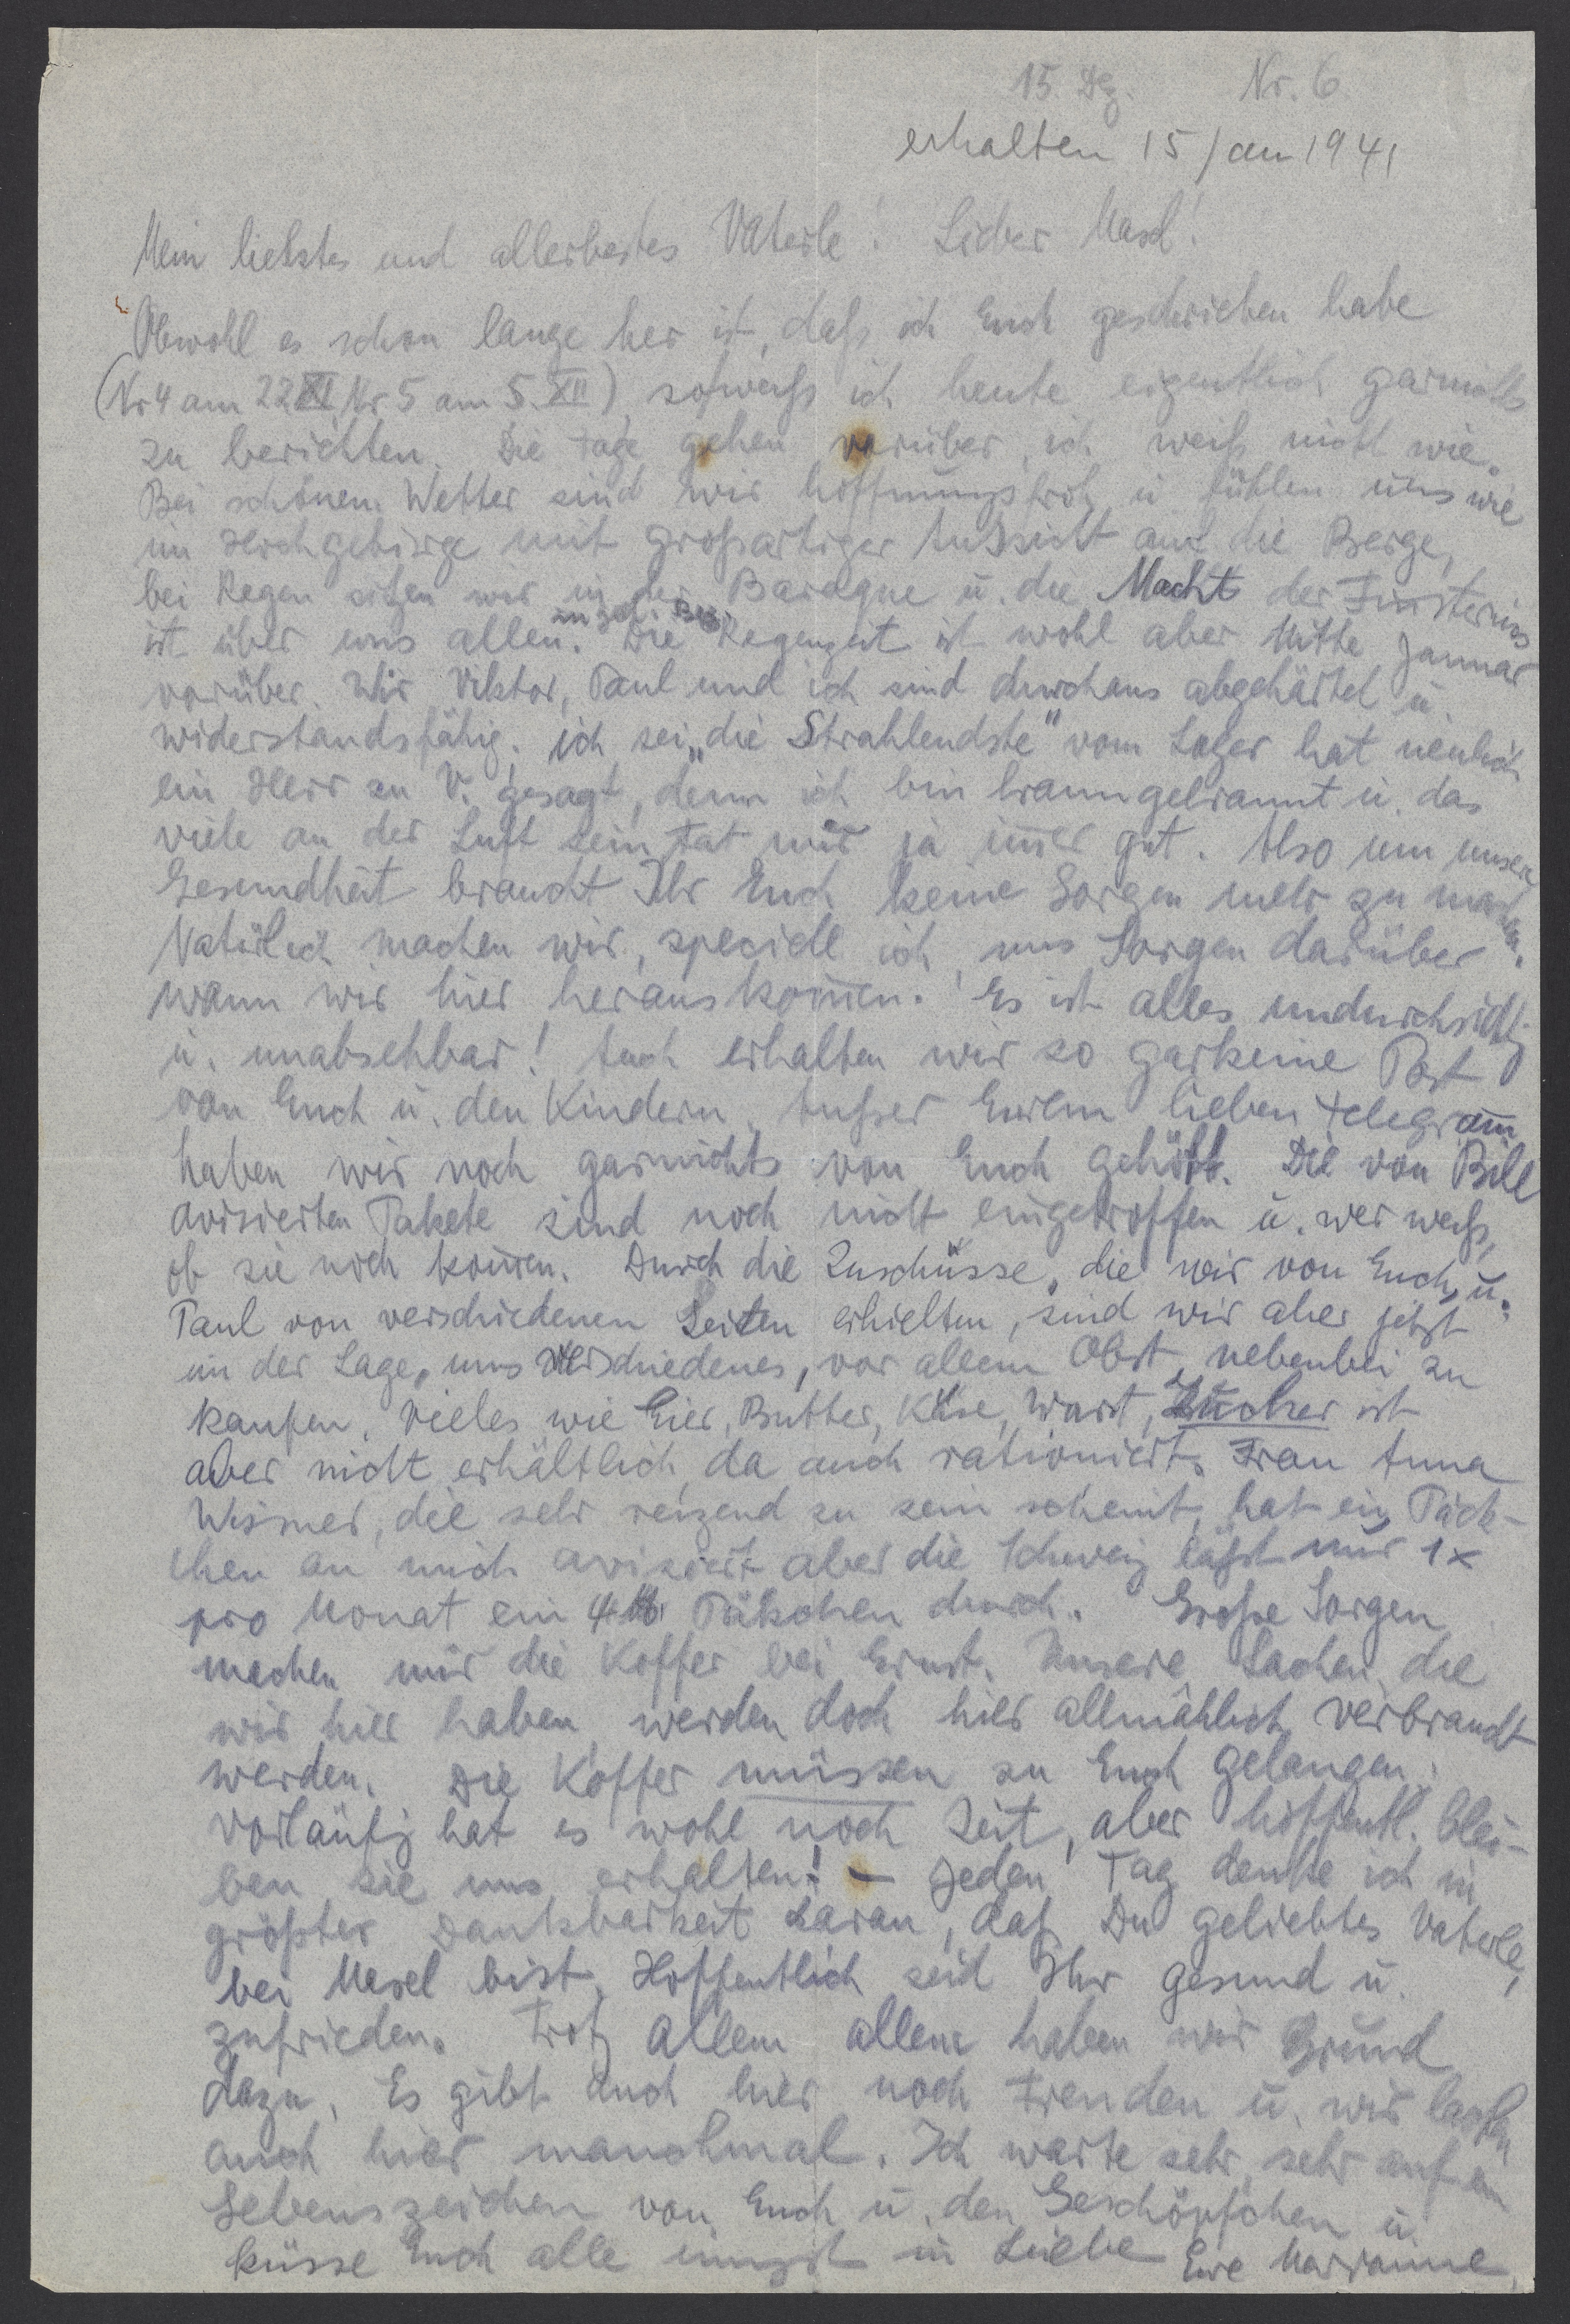 15. Dez. Nr. 6.
erhalten 15 Jan 1941
Mein liebstes und allerbestes Vaterle! Lieber Masel!
Obwohl es schon lange her ist, daß ich Euch geschrieben habe
(Nr 4 am 22 XI Nr 5 am 5. XII), so weiß ich heute eigentlich garnichts
zu berichten. Die Tage gehen vorüber, ich weiß nicht wie.
Bei schönem Wetter sind wir hoffnungsfroh u fühlen uns wie
im Hochgebirge mit großartiger Aussicht auf die Berge,
bei Regen sitzen wir in der Baraque u. die Macht der Finsternis
ist über uns allen. Die Regenzeit ist wohl aber Mitte Januar
vorüber. Wir Viktor, Paul und ich sind durchaus abgehärtet u.
widerstandsfähig. ich sei „die Strahlendste" vom Lager hat neulich
ein Herr zu V. gesagt, denn ich bin braungebrannt u. das
viele an der Luft sein tat mir ja im̅er gut. Also um unsere
Gesundheit braucht Ihr Euch keine Sorgen mehr zu machen.
Natürlich machen wir, speciell ich, uns Sorgen darüber
wann wir hier herauskom̅en. Es ist alles undurchsichtig
u. unabsehbar! Auch erhalten wir so garkeine Post
von Euch u. den Kindern. Außer Eurem lieben Telegram̅
haben wir noch garnichts von Euch gehört. Die von Bill
avisierten Pakete sind noch nicht eingetroffen u. wer weiß,
ob sie noch kom̅en. Durch die Zuschüsse, die wir von Euch, u.
Paul von verschiedenen Seiten erhielten, sind wir aber jetzt
in der Lage, uns verschiedenes, vor allem Obst, nebenbei zu
kaufen. Vieles wie Eier, Butter, Käse, Wurst, Zucker ist
aber nicht erhältlich, da auch rationiert. Frau Anna
Wismer, die sehr reizend zu sein scheint, hat ein Päck-
chen an mich avisiert aber die Schweiz läßt nur 1x
pro Monat ein 4 ℔ Päkchen durch. Große Sorgen
machen mir die Koffer bei Ernst. Unsere Sachen, die
wir hier haben, werden doch hier allmählich verbraucht
werden. Die Koffer müssen zu Euch gelangen.
Vorläufig hat es wohl noch Zeit, aber hoffentl. blei-
ben sie uns erhalten! – Jeden Tag denke ich in
größter Dankbarkeit daran, daß Du geliebtes Vaterle,
bei Masel bist. Hoffentlich seid Ihr gesund u.
zufrieden. Trotz allem allem haben wir Grund
dazu. Es gibt auch hier noch Freuden u. wir lachen
auch hier manchmal. Ich warte sehr, sehr auf ein
Lebenszeichen von Euch u. den Geschöpfchen u.
küsse Euch alle innigst in Liebe Eure Marianne.